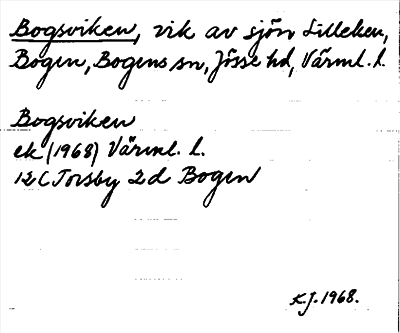 Bogsviken, vik av sjön Lilleken,
Bogen, Bogens sn, Jösse hd, Värml. l.
Bogsviken
ek (1968) Värml. l.
12 C Torsby 2 d Bogen
K.J. 1968.